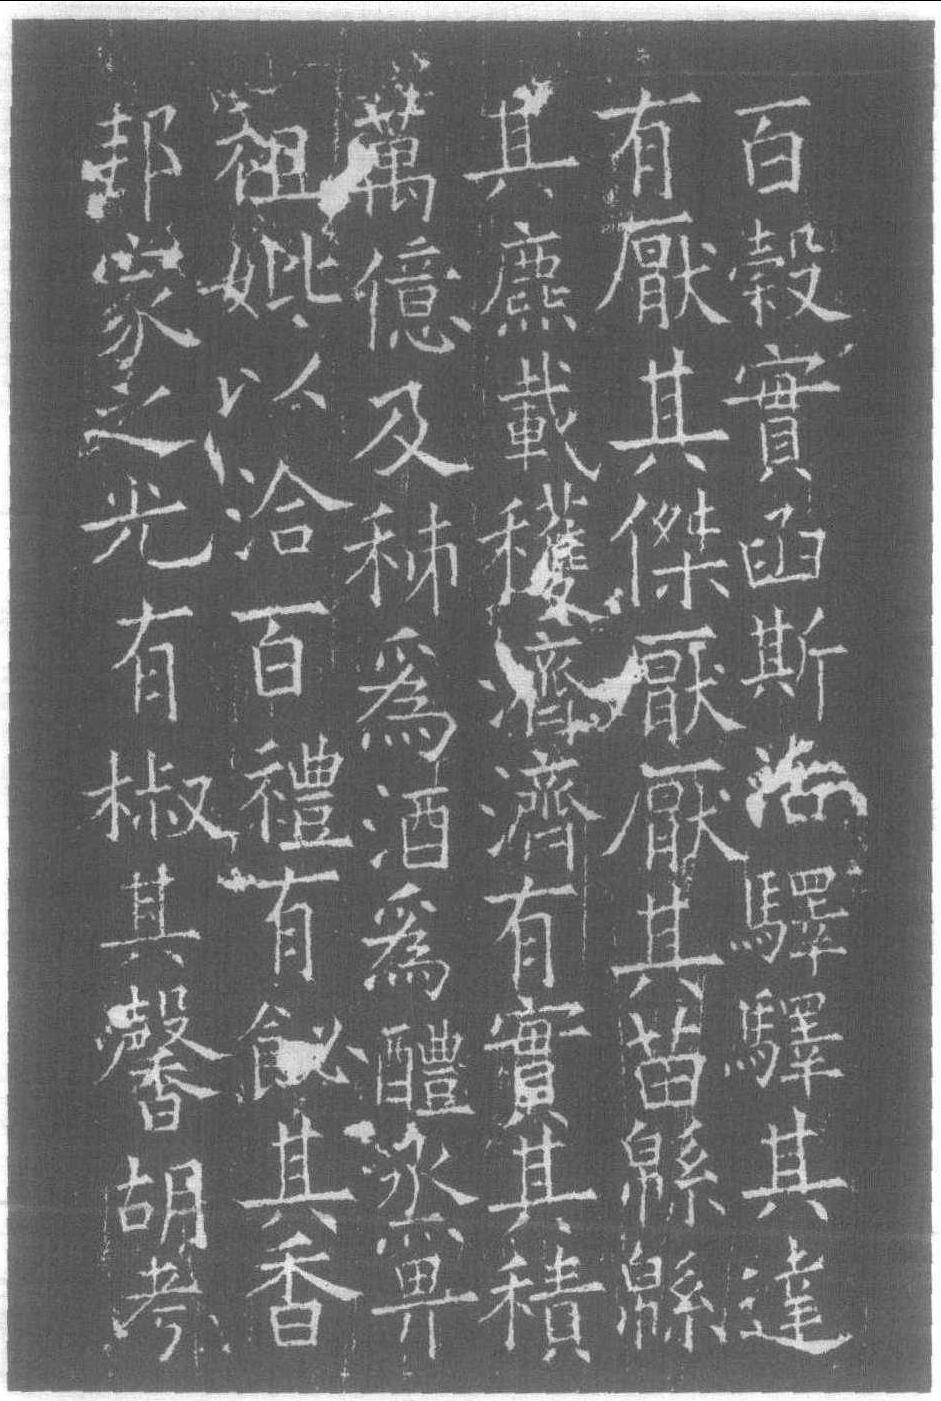 百穀實函斯活驛驛其達
有厭其傑厭厭其苗緜緜
其麃載穫濟濟有實其積
萬億及秭爲酒爲醴烝畀
祖妣以洽百禮有飶其香
邦家之光有椒其馨胡考